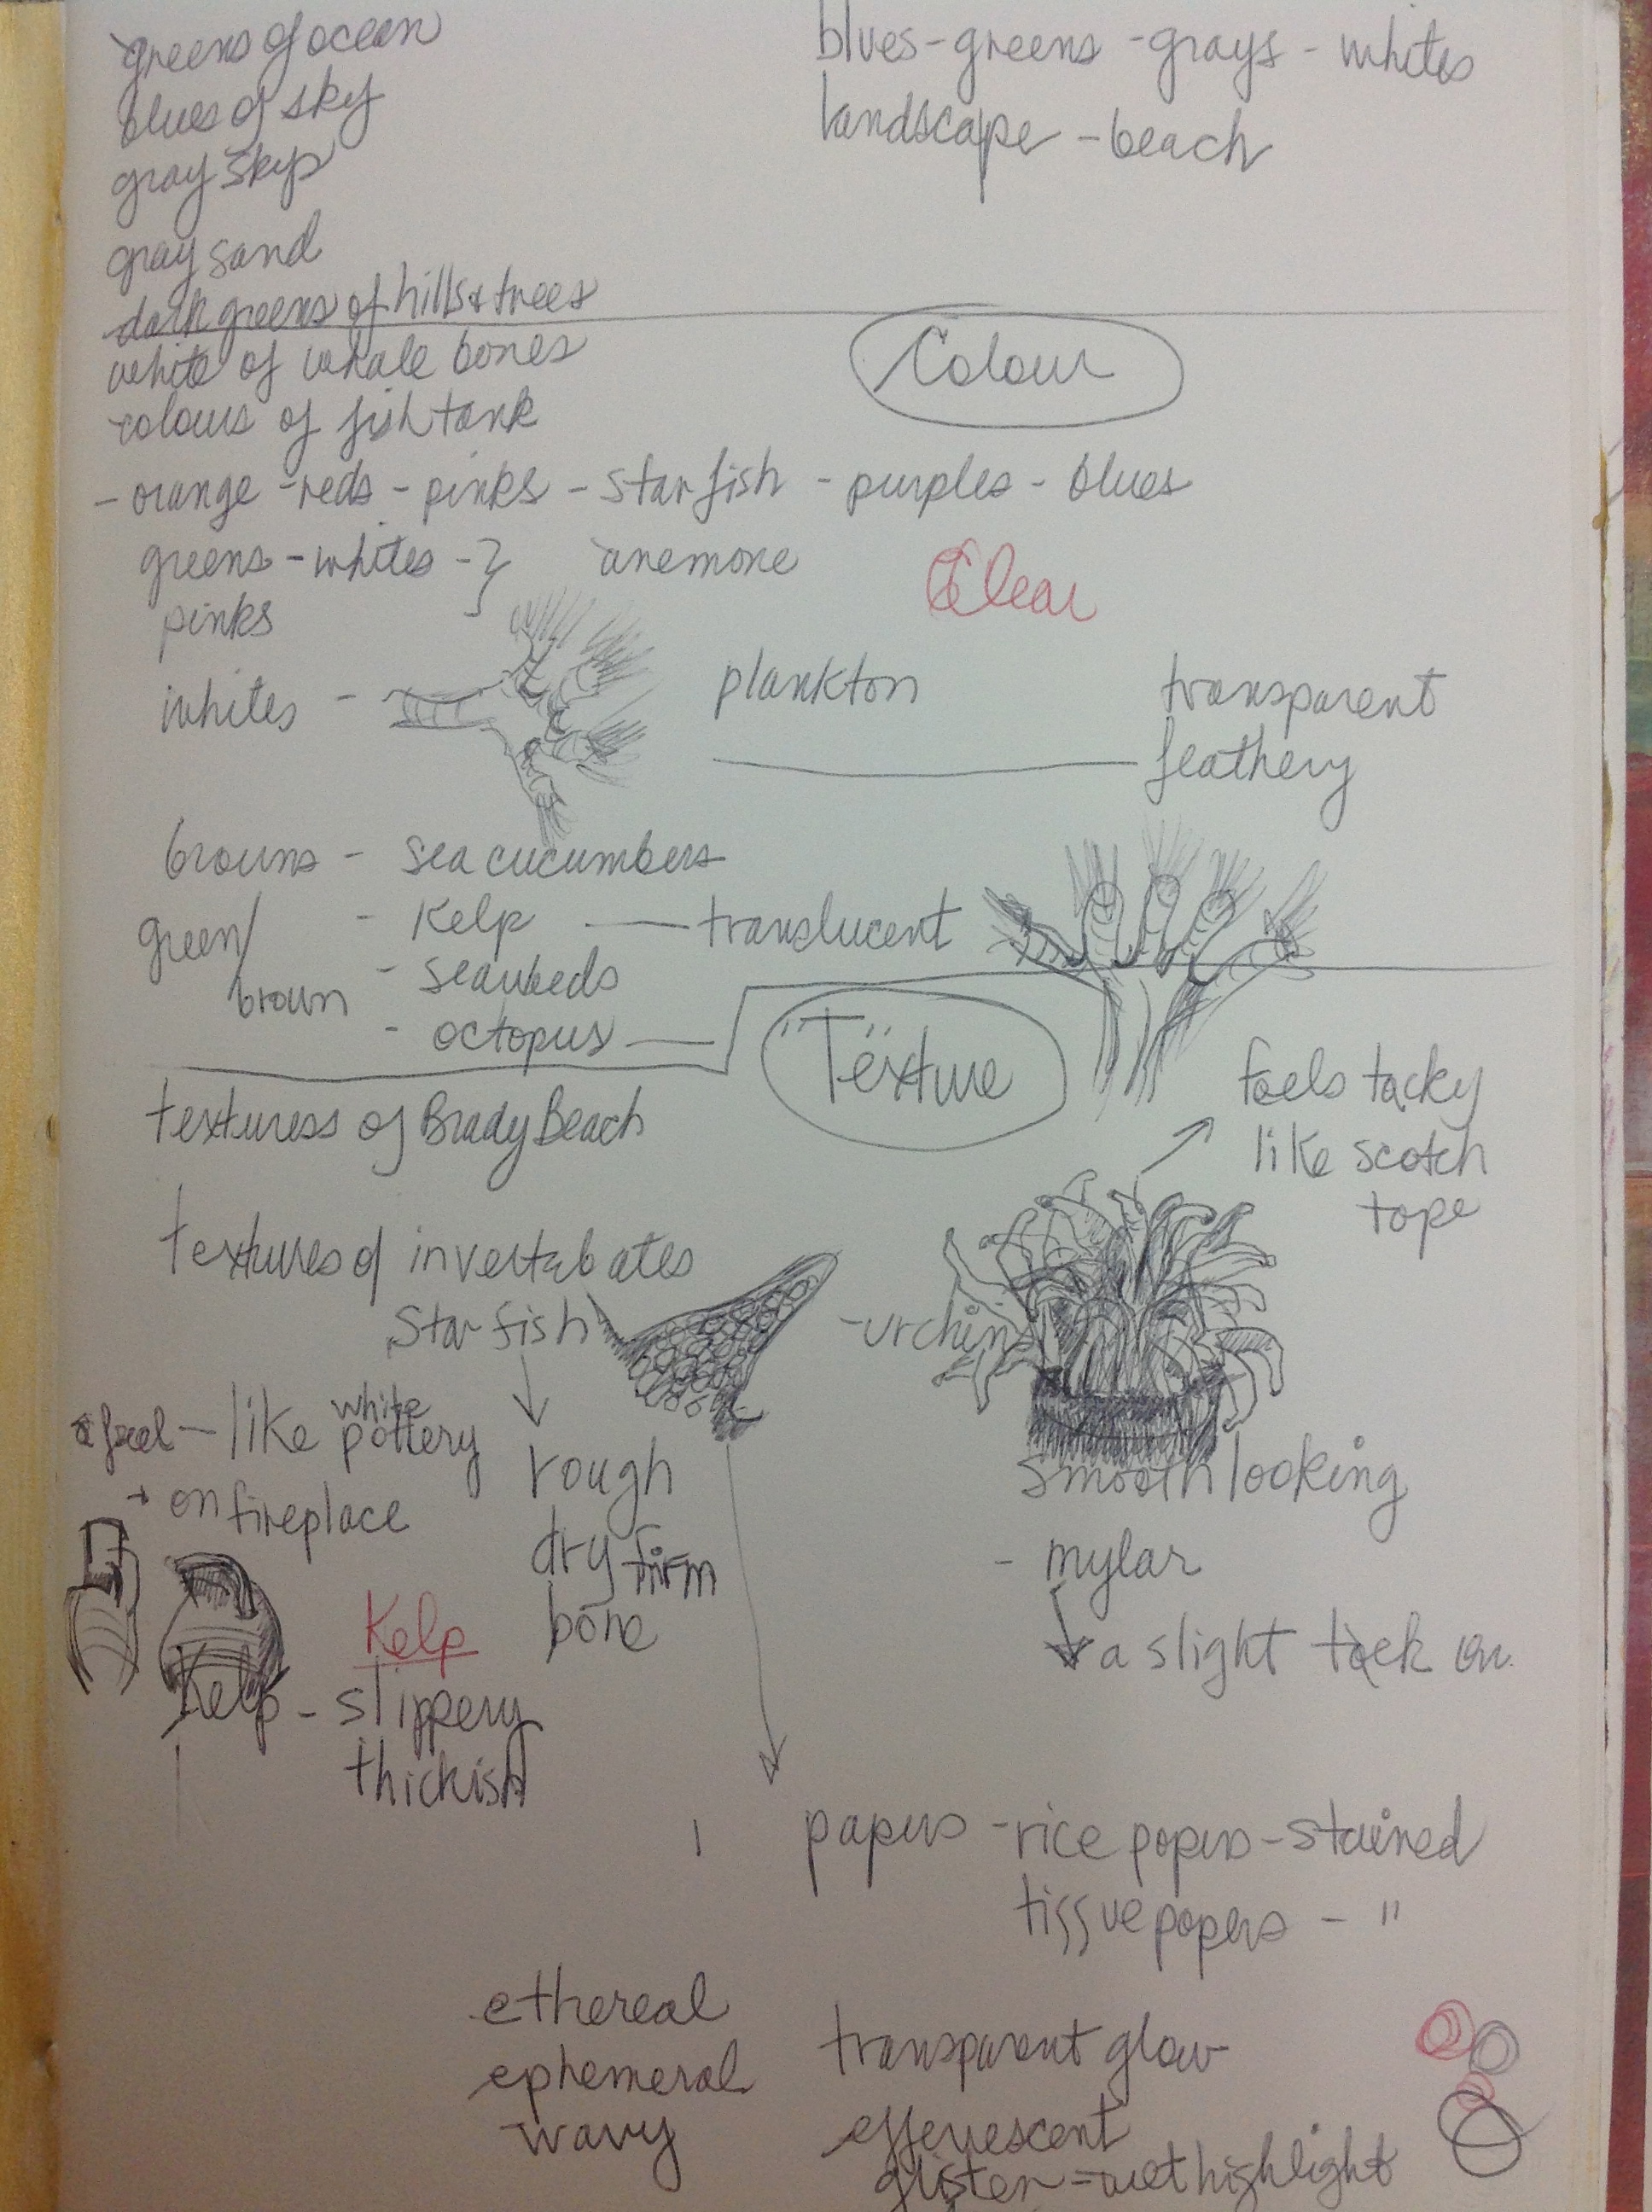 greens of ocean
blues of sky
gray skys
gray sand
dark greens of hills & trees
blues - greens - grays - whites
landscape - beach
Colour
white of whale bones
colours of fish tank
- orange - reds - pinks - starfish - purples - blues
greens - whites - } anemone
pinks
Clear
whites -
plankton
transparent
feathery
browns - sea cucumbers
green/ - Kelp — translucent
brown - seaweeds
- octopus
"Texture"
texturess of Brady Beach
feels tacky
like scotch
tape
textures of invertabates
Starfish
- urchins
feel - like white pottery
on fireplace
rough
dry firm
bone
smooth looking
- mylar
a slight tack on
Kelp
Kelp - slippery
thickish
papers - rice papers - stained
tissue papers - "
ethereal
ephemeral
wavy
transparent glow
effervescent
glisten = wet highlight